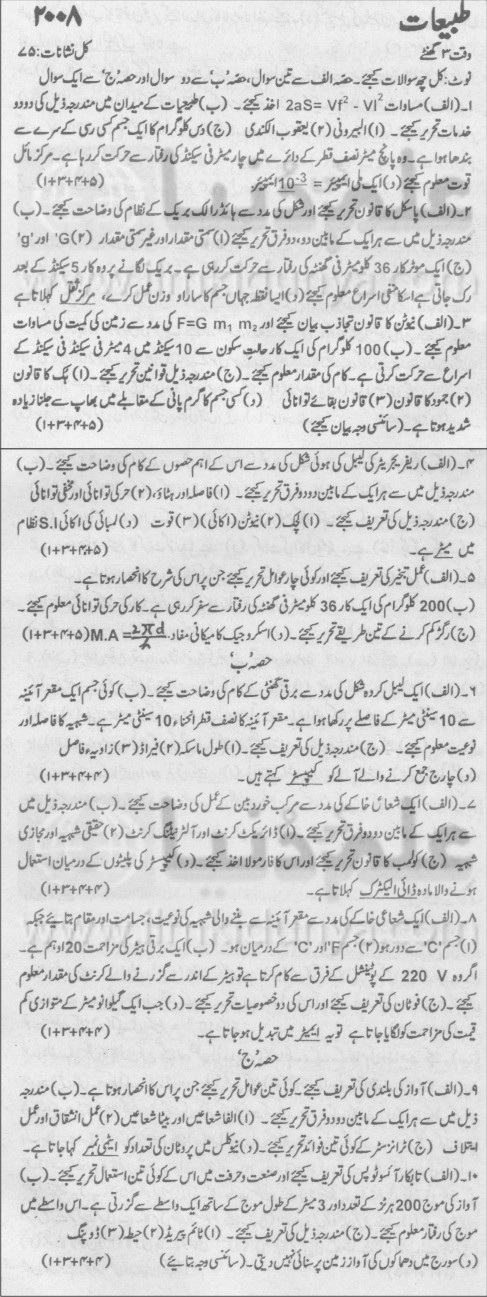 طبیعات
۲۰۰۸
وقت ۳ گھنٹے
کل نشانات: ۷۵
نوٹ: کل چھ سوالات کیجئے۔ حصہ الف سے تین سوال، حصہ 'ب' سے دو سوال اور حصہ 'ج' سے ایک سوال
۱۔ (الف) مساوات 2aS= Vf² - VI² اخذ کیجئے۔ (ب) طبیعیات کے میدان میں مندرجہ ذیل کی دو دو
خدمات تحریر کیجئے۔ (۱) البیرونی (۲) یعقوب الکندی (ج) دس کلوگرام کا ایک جسم کسی رسی کے سرے سے
بندھا ہوا ہے۔ وہ پانچ میٹر نصف قطر کے دائرے میں چار میٹر فی سیکنڈ کی رفتار سے حرکت کر رہا ہے۔ مرکز مائل
قوت معلوم کیجئے (د) ایک ملی ایمپیئر = 10⁻³ ایمپیئر (۱+۳+۴+۵)
۲۔ (الف) پاسکل کا قانون تحریر کیجئے اور شکل کی مدد سے ہائڈرالک بریک کے نظام کی وضاحت کیجئے۔ (ب)
مندرجہ ذیل میں سے ہر ایک کے مابین دو، دو فرق تحریر کیجئے (۱) سمتی مقدار اور غیر سمتی مقدار (۲) 'G' اور 'g'
(ج) ایک موٹر کار 36 کلومیٹر فی گھنٹہ کی رفتار سے حرکت کر رہی ہے۔ بریک لگانے پر وہ کار 5 سیکنڈ کے بعد
رک جاتی ہے اسکا منفی اسراع معلوم کیجئے (د) ایسا نقطہ جہاں جسم کا سارا وزن عمل کرے، مرکز ثقل کہلاتا ہے
۳۔ (الف) نیوٹن کا قانون تجاذب بیان کیجئے اور F=G m₁ m₂ کی مدد سے زمین کی کمیت کی مساوات
معلوم کیجئے۔ (ب) 100 کلوگرام کی ایک کار حالت سکون سے 10 سیکنڈ میں 4 میٹر فی سیکنڈ فی سیکنڈ کے
اسراع سے حرکت کرتی ہے۔ کام کی مقدار معلوم کیجئے۔ (ج) مندرجہ ذیل قوانین تحریر کیجئے۔ (۱) ہک کا قانون
(۲) جمود کا قانون (۳) قانون بقائے توانائی (د) کسی جسم کا گرم پانی کے مقابلے میں بھاپ سے جلنا زیادہ
شدید ہوتا ہے۔ (سائنسی وجہ بیان کیجئے) (۱+۳+۴+۵)
۴۔ (الف) ریفریجریٹر کی لیبل کی ہوئی شکل کی مدد سے اس کے اہم حصوں کے کام کی وضاحت کیجئے۔ (ب)
مندرجہ ذیل میں سے ہر ایک کے مابین دو دو فرق تحریر کیجئے۔ (۱) فاصلہ اور ہٹاؤ، (۲) حرکی توانائی اور مخفی توانائی
(ج) مندرجہ ذیل کی تعریف کیجئے۔ (۱) لچک (۲) نیوٹن (اکائی) (۳) قوت (د) لمبائی کی اکائی S.I نظام
میں میٹر ہے۔ (۱+۳+۴+۵)
۵۔ (الف) عمل تبخیر کی تعریف کیجئے اور کوئی چار عوامل تحریر کیجئے جن پر اس کی شرح کا انحصار ہوتا ہے۔
(ب) 200 کلوگرام کی ایک کار 36 کلومیٹر فی گھنٹہ کی رفتار سے سفر کر رہی ہے۔ کار کی حرکی توانائی معلوم کیجئے۔
(ج) رگڑ کم کرنے کے تین طریقے تحریر کیجئے۔ (د) اسکروجیک کا میکانی مفاد M.A = 2πd/h (۱+۳+۴+۵)
حصہ 'ب'
۶۔ (الف) ایک لیبل کردہ شکل کی مدد سے برقی گھنٹی کے کام کی وضاحت کیجئے۔ (ب) کوئی جسم ایک مقعر آئینہ
سے 10 سینٹی میٹر کے فاصلے پر رکھا ہوا ہے۔ مقعر آئینہ کا نصف قطر انحناء 10 سینٹی میٹر ہے۔ شبیہ کا فاصلہ اور
نوعیت معلوم کیجئے۔ (ج) مندرجہ ذیل کی تعریف کیجئے۔ (۱) طول ماسکہ (۲) فیراڈ (۳) زاویہ فاصل
(د) چارج جمع کرنے والے آلے کو کپیسٹر کہتے ہیں۔ (۱+۳+۴+۴)
۷۔ (الف) ایک شعاعی خاکے کی مدد سے مرکب خوردبین کے عمل کی وضاحت کیجئے۔ (ب) مندرجہ ذیل میں
سے ہر ایک کے مابین دو دو فرق تحریر کیجئے۔ (۱) ڈائریکٹ کرنٹ اور آلٹرنیٹنگ کرنٹ (۲) حقیقی شبیہ اور مجازی
شبیہ (ج) کولمب کا قانون تحریر کیجئے اور اس کا فارمولا اخذ کیجئے۔ (د) کپیسٹر کی پلیٹوں کے درمیان استعمال
ہونے والا مادہ ڈائی الیکٹرک کہلاتا ہے۔ (۱+۳+۴+۴)
۸۔ (الف) ایک شعاعی خاکے کی مدد سے مقعر آئینہ سے بننے والی شبیہ کی نوعیت، جسامت اور مقام بتائیے جبکہ
(۱) جسم 'C' سے دور ہو (۲) جسم 'F' اور 'C' کے درمیان ہو۔ (ب) ایک برقی ہیٹر کی مزاحمت 20 اوہم ہے۔
اگر وہ 220 V کے پوٹینشل کے فرق سے کام کرتا ہے تو ہیٹر کے اندر سے گزرنے والے کرنٹ کی مقدار معلوم
کیجئے۔ (ج) فوٹان کی تعریف کیجئے اور اس کی دو خصوصیات تحریر کیجئے۔ (د) جب ایک گیلوانومیٹر کے متوازی کم
قیمت کی مزاحمت کو لگایا جاتا ہے تو یہ ایمیٹر میں تبدیل ہو جاتا ہے۔ (۱+۳+۴+۴)
حصہ 'ج'
۹۔ (الف) آواز کی بلندی کی تعریف کیجئے۔ کوئی تین عوامل تحریر کیجئے جن پر اس کا انحصار ہوتا ہے۔ (ب) مندرجہ
ذیل میں سے ہر ایک کے مابین دو دو فرق تحریر کیجئے۔ (۱) الفا شعاعیں اور بیٹا شعاعیں (۲) عمل انشقاق اور عمل
ایتلاف (ج) ٹرانزسٹر کے کوئی تین فوائد تحریر کیجئے۔ (د) نیوکلس میں پروٹان کی تعداد کو ایٹمی نمبر کہا جاتا ہے۔
۱۰۔ (الف) تابکار آئسوٹوپس کی تعریف کیجئے اور صنعت و حرفت میں اس کے کوئی تین استعمال تحریر کیجئے۔ (ب)
آواز کی موج 200 ہرٹز کے تعدد اور 3 میٹر کے طول موج کے ساتھ ایک واسطے سے گزرتی ہے۔ اس واسطے میں
موج کی رفتار معلوم کیجئے۔ (ج) مندرجہ ذیل کی تعریف کیجئے۔ (۱) ٹائم پیریڈ (۲) حیطہ (۳) ڈوپنگ
(د) سورج میں دھماکوں کی آواز زمین پر سنائی نہیں دیتی۔ (سائنسی وجہ بتایئے) (۱+۳+۴+۴)